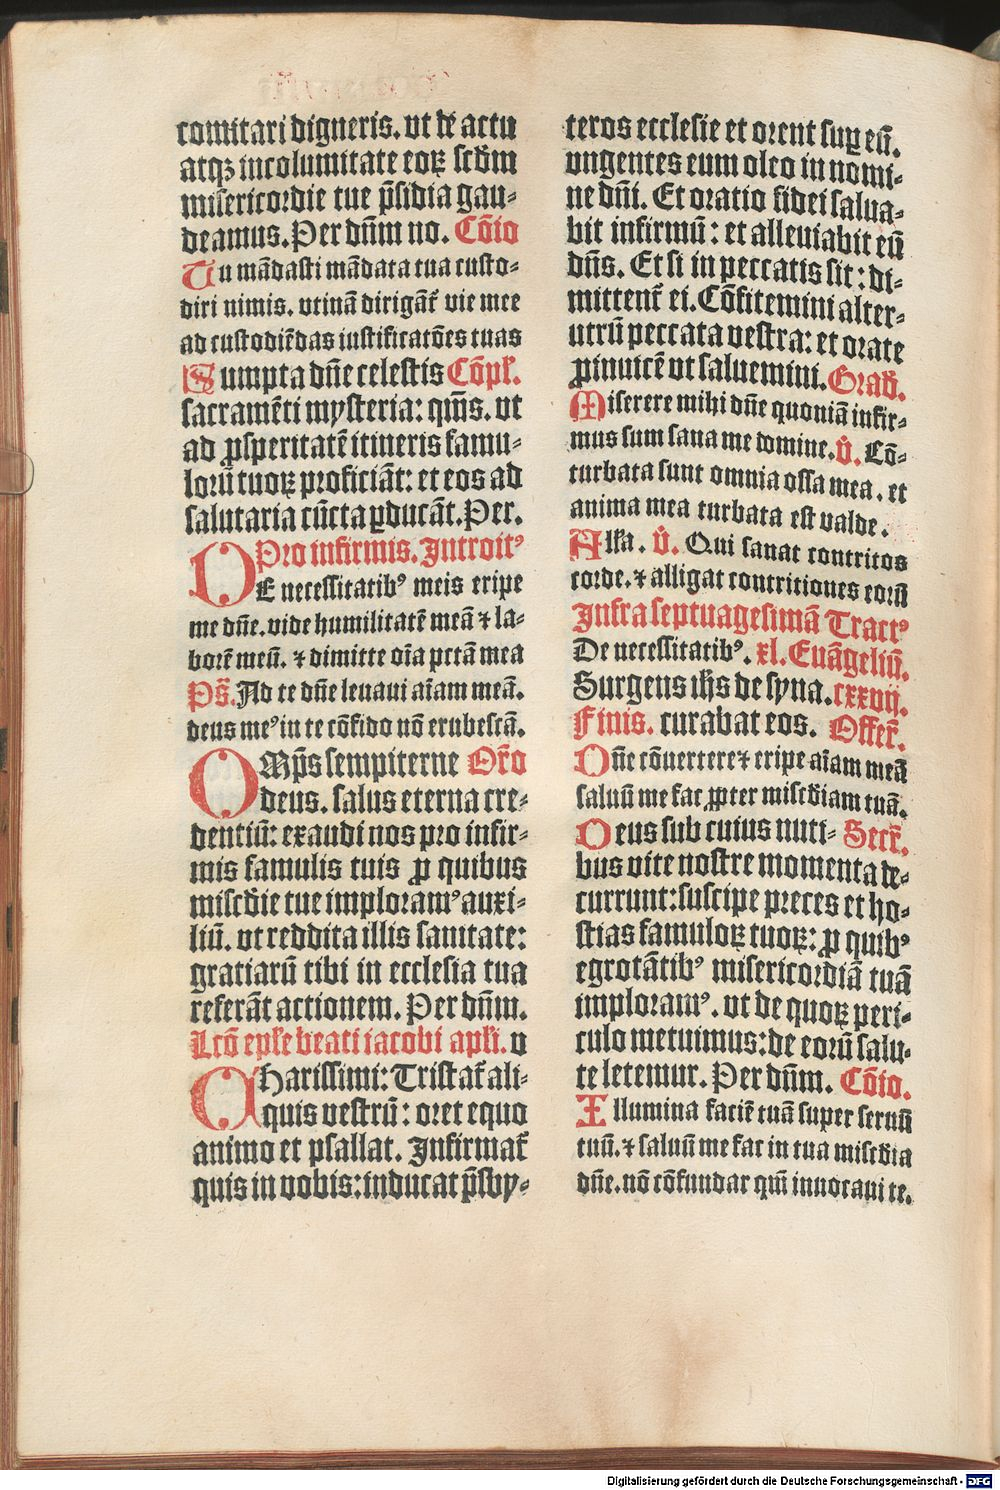 comitari digneris. vt de actu
atqꝫ incolumitate eoꝝ scd̄m
misericordie tue p̄sidia gau-
deamus. Per dn̄m no. Cōio
Tu mādasti mādata tua custo-
diri nimis. vtinā dirigāt᷑ vie mee
ad custodiēdas iustificatōes tuas
Sumpta dn̄e celestis Cōpl᷑.
sacramēti mysteria: qm̄s. vt
ad ꝓsperitatē itineris famu-
lorū tuoꝝ proficiāt: et eos ad
salutaria cūcta ꝑducāt. Per.
Pro infirmis. Introitꝰ
DE necessitatibꝰ meis eripe
me dn̄e. vide humilitatē meā ⁊ la-
borē meū. ⁊ dimitte oīa pctā mea
Ps̄. Ad te dn̄e leuaui aīam meā.
deus meꝰ in te cōfido nō erubescā.
OMp̄s sempiterne Or̄o
deus. salus eterna cre-
dentiū: exaudi nos pro infir-
mis famulis tuis ꝓ quibus
misc̄die tue imploramꝰ auxi-
liū. vt reddita illis sanitate:
gratiarū tibi in ecclesia tua
referāt actionem. Per dn̄m.
Lc̄o epl᷑e beati iacobi apl᷑i. v
CHarissimi: Tristat᷑ ali-
quis vestrū: oret equo
animo et psallat. Infirmat᷑
quis in vobis: inducat p̄sby-
teros ecclesie et orent suꝑ eū.
vngentes eum oleo in nomi-
ne dn̄i. Et oratio fidei salua-
bit infirmū: et alleuiabit eū
dn̄s. Et si in peccatis sit: di-
mittent᷑ ei. Cōfitemini alter-
utrū peccata vestra: et orate
ꝓinuicē vt saluemini. Grad̄.
Miserere mihi dn̄e quoniā infir-
mus sum sana me domine. v̄. Cō-
turbata sunt omnia ossa mea. et
anima mea turbata est valde.
All᷑a. v̄. Qui sanat contritos
corde. ⁊ alligat contritiones eorū
Infra septuagesimā Tractꝰ
De necessitatibꝰ. xl. Euāgeliū.
Surgens ih̄s de syna. cxxvij.
Finis. curabat eos. Offer̄.
Dn̄e cōuertere ⁊ eripe aīam meā
saluū me fac ꝓpter misc̄diam tuā.
Deus sub cuius nuti- Secr̄.
bus vite nostre momenta de-
currunt: suscipe preces et ho-
stias famuloꝝ tuoꝝ: ꝓ quibꝰ
egrotātibꝰ misericordiā tuā
imploramꝰ. vt de quoꝝ peri-
culo metuimus: de eorū salu-
te letemur. Per dn̄m. Cōio.
Illumina faciē tuā super seruū
tuū. ⁊ saluū me fac in tua misc̄dia
dn̄e. nō cōfundar qm̄ inuocaui te.
Digitalisierung gefördert durch die Deutsche Forschungsgemeinschaft - DFG